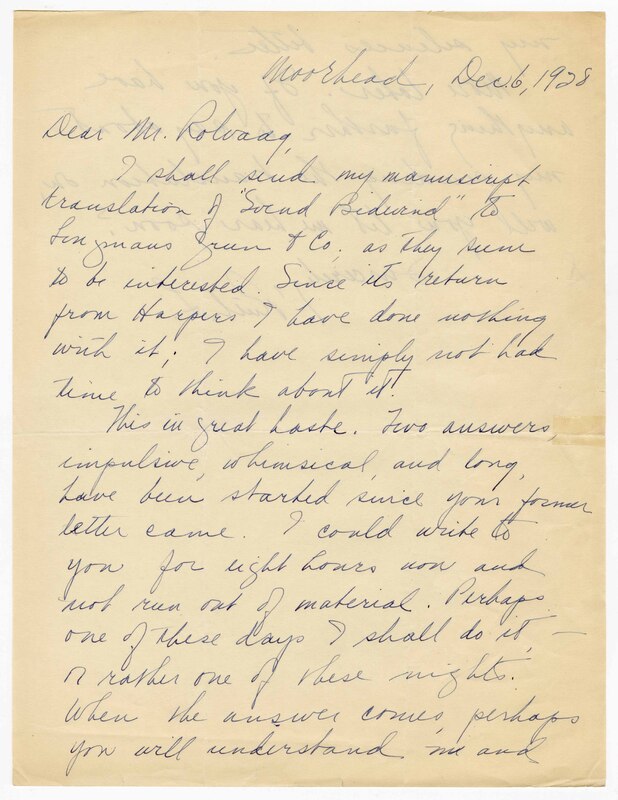 Moorhead, Dec 6, 1928
Dear Mr. Rolvaag,
I shall send my manuscript
translation of "Svend Bidevind" to
Longmans Green & Co. as they seem
to be interested. Since its return
from Harpers I have done nothing
with it; I have simply not had
time to think about it.
This in great haste. Two answers,
impulsive, whimsical, and long,
have been started since your former
letter came. I could write to
you for eight hours now and
not run out of material. Perhaps
one of these days I shall do it, —
or rather one of these nights.
When the answer comes, perhaps
you will understand me and